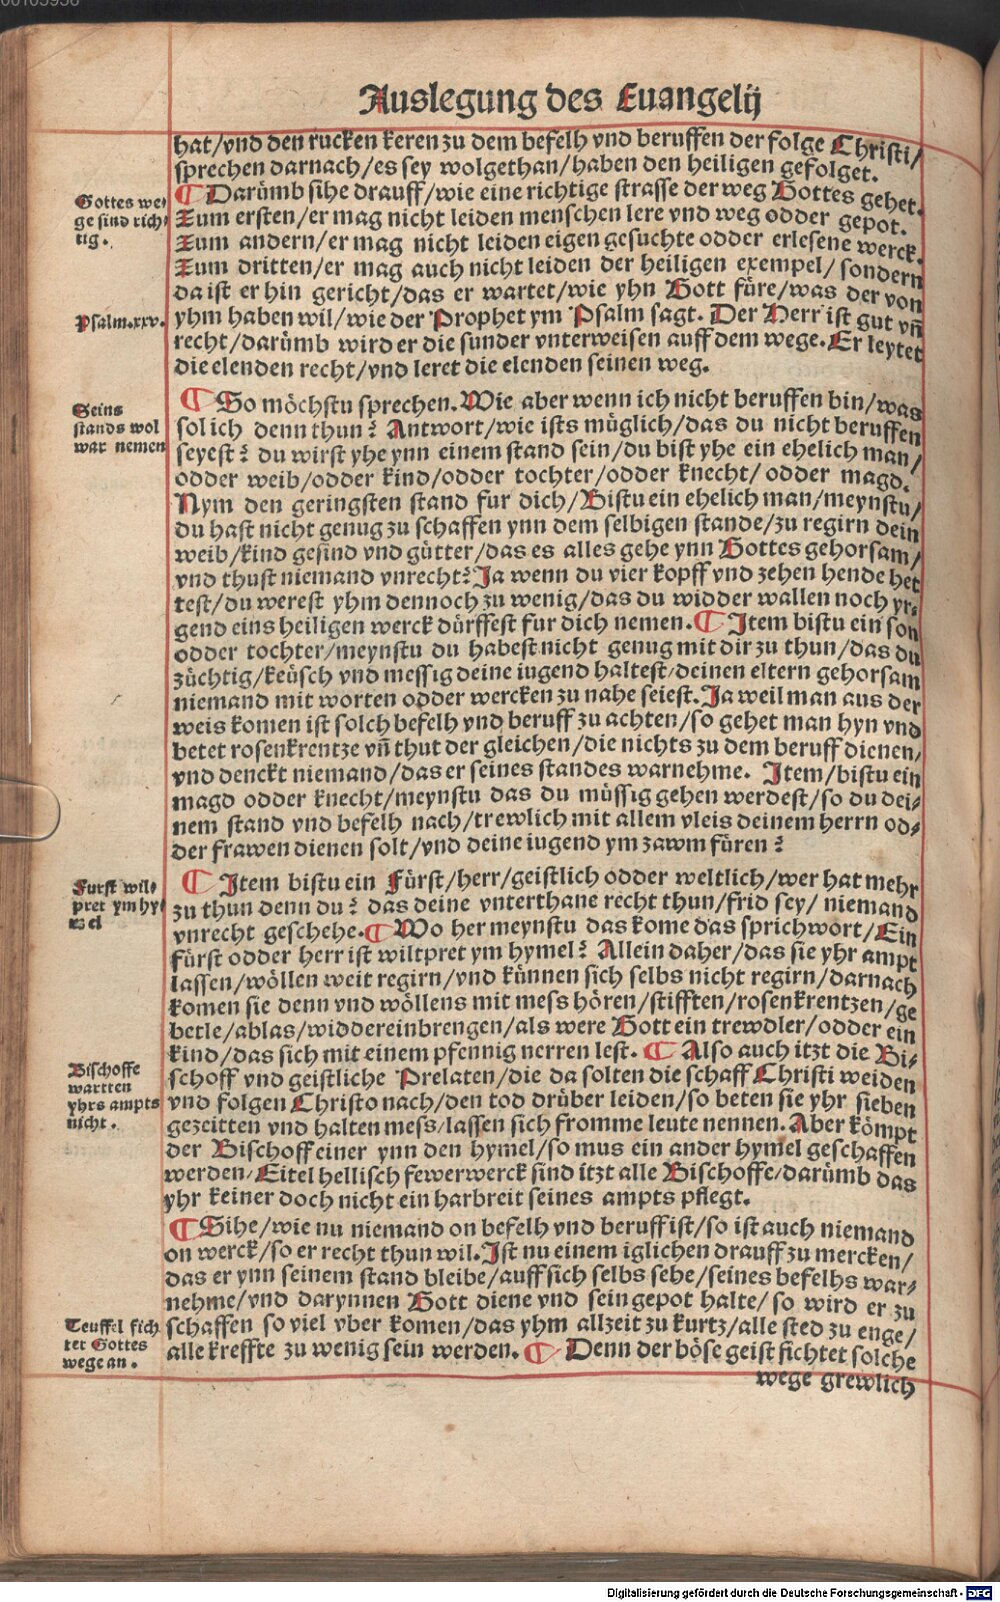 Auslegung des Euangelij
hat/vnd den rucken keren zu dem befelh vnd beruffen der folge Christi/
sprechen darnach/es sey wolgethan/haben den heiligen gefolget.
Gottes we-
ge sind rich-
tig.
¶ Darümb sihe drauff/wie eine richtige strasse der weg Gottes gehet.
Zum ersten/er mag nicht leiden menschen lere vnd weg odder gepot.
Zum andern/er mag nicht leiden eigen gesuchte odder erlesene werck.
Zum dritten/er mag auch nicht leiden der heiligen exempel/sondern
da ist er hin gericht/das er wartet/wie yhn Gott füre/was der von
Psalm.xxv.
yhm haben wil/wie der Prophet ym Psalm sagt. Der Herr ist gut vñ
recht/darümb wird er die sunder vnterweisen auff dem wege. Er leytet
die elenden recht/vnd leret die elenden seinen weg.
Seins
stands wol
war nemen
¶ So möchstu sprechen. Wie aber wenn ich nicht beruffen bin/was
sol ich denn thun? Antwort/wie ists müglich/das du nicht beruffen
seyest? du wirst yhe ynn einem stand sein/du bist yhe ein ehelich man/
odder weib/odder kind/odder tochter/odder knecht/odder magd.
Nym den geringsten stand fur dich/Bistu ein ehelich man/meynstu/
du hast nicht genug zu schaffen ynn dem selbigen stande/zu regirn dein
weib/kind gesind vnd gütter/das es alles gehe ynn Gottes gehorsam/
vnd thust niemand vnrecht? Ja wenn du vier kopff vnd zehen hende het
test/du werest yhm dennoch zu wenig/das du widder wallen noch yr-
gend eins heiligen werck dürffest fur dich nemen. ¶ Item bistu ein son
odder tochter/meynstu du habest nicht genug mit dir zu thun/das du
züchtig/keüsch vnd messig deine iugend haltest/deinen eltern gehorsam
niemand mit worten odder wercken zu nahe seiest. Ja weil man aus der
weis komen ist solch befelh vnd beruff zu achten/so gehet man hyn vnd
betet rosenkrentze vñ thut der gleichen/die nichts zu dem beruff dienen/
vnd denckt niemand/das er seines standes warnehme. Item/bistu ein
magd odder knecht/meynstu das du müssig gehen werdest/so du dei-
nem stand vnd befelh nach/trewlich mit allem vleis deinem herrn od-
der frawen dienen solt/vnd deine iugend ym zawm füren?
Furst wil-
pret ym hy-
mel
¶ Item bistu ein Fürst/herr/geistlich odder weltlich/wer hat mehr
zu thun denn du? das deine vnterthane recht thun/frid sey/niemand
vnrecht geschehe. ¶ Wo her meynstu das kome das sprichwort/Ein
fürst odder herr ist wiltpret ym hymel? Allein daher/das sie yhr ampt
lassen/wöllen weit regirn/vnd künnen sich selbs nicht regirn/darnach
komen sie denn vnd wöllens mit mess hören/stifften/rosenkrentzen/ge
betle/ablas/widdereinbrengen/als were Gott ein trewdler/odder ein
kind/das sich mit einem pfennig nerren lest. ¶ Also auch itzt die Bi-
Bischoffe
wartten
yhrs ampts
nicht.
schoff vnd geistliche Prelaten/die da solten die schaff Christi weiden
vnd folgen Christo nach/den tod drüber leiden/so beten sie yhr sieben
gezeitten vnd halten mess/lassen sich fromme leute nennen. Aber kömpt
der Bischoff einer ynn den hymel/so mus ein ander hymel geschaffen
werden/Eitel hellisch fewerwerck sind itzt alle Bischoffe/darümb das
yhr keiner doch nicht ein harbreit seines ampts pflegt.
¶ Sihe/wie nu niemand on befelh vnd beruff ist/so ist auch niemand
on werck/so er recht thun wil. Ist nu einem iglichen drauff zu mercken/
das er ynn seinem stand bleibe/auff sich selbs sehe/seines befelhs war-
nehme/vnd darynnen Gott diene vnd sein gepot halte/so wird er zu
Teuffel fich
tet Gottes
wege an.
schaffen so viel vber komen/das yhm allzeit zu kurtz/alle sted zu enge/
alle kreffte zu wenig sein werden. ¶ Denn der böse geist fichtet solche
wege grewlich
Digitalisierung gefördert durch die Deutsche Forschungsgemeinschaft - DFG